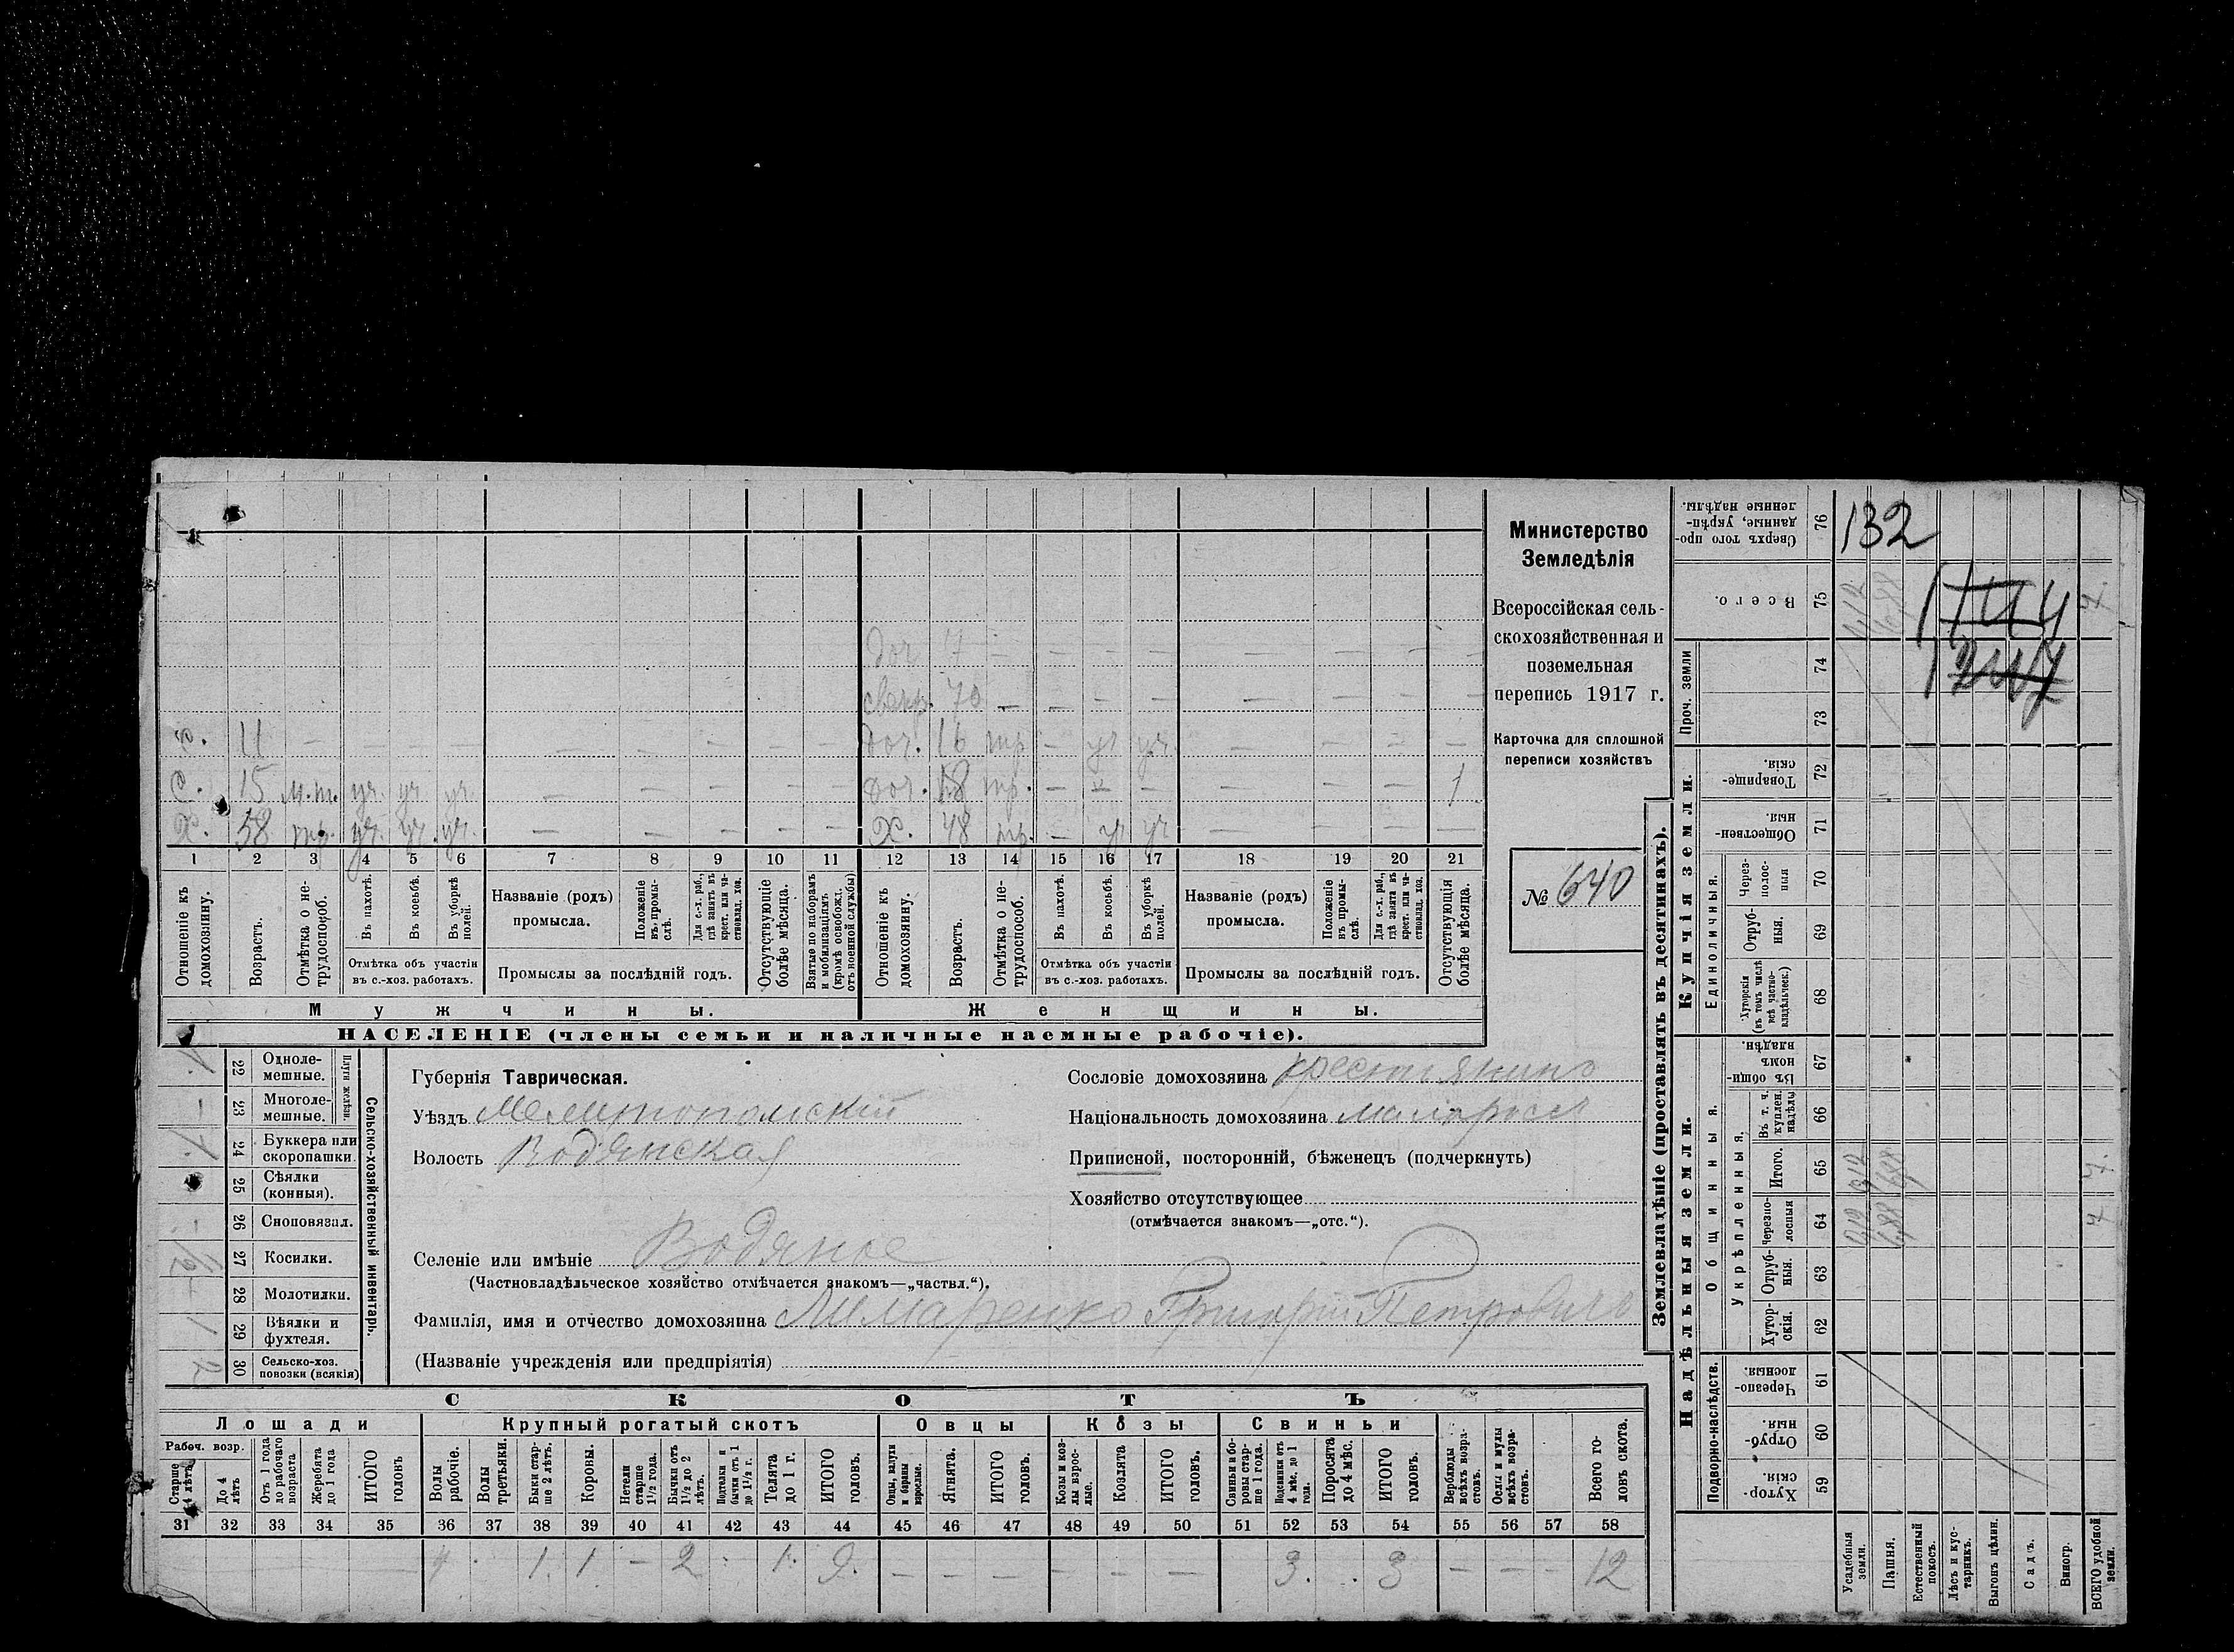 доч 7 — — — — — — — —
свекр. 70 — — — — — — — —
с. 11 — — — — — — — — —
доч. 16 тр — уч уч. — — — —
с. 15 м.т. уч. уч уч. — — — — —
доч. 18 тр. — — — — — — 1
х. 58 тр. уч. уч. уч. — — — — —
Х. 48 тр. — уч уч — — — —
1 2 3 4 5 6 7 8 9 10 11 12 13 14 15 16 17 18 19 20 21
Отношеніе къ домохозяину.
Возрастъ.
Отмѣтка о не-трудоспособ.
Въ пахотѣ.
Въ косьбѣ.
Въ уборкѣ полей.
Отмѣтка объ участіи
въ с.-хоз. работахъ.
Названіе (родъ)
промысла.
Положеніе въ промы-слѣ.
Для с.-х. раб., гдѣ занятъ въ крест. или ча-стновлад. хоз.
Промыслы за послѣдній годъ.
Отсутствующіе болѣе мѣсяца.
Взятые по наборамъ и мобилизаціямъ (кромѣ освобожд. отъ военной службы)
Отношеніе къ домохозяину.
Возрастъ.
Отмѣтка о не-трудоспособ.
Въ пахотѣ.
Въ косьбѣ.
Въ уборкѣ полей.
Отмѣтка объ участіи
въ с.-хоз. работахъ.
Названіе (родъ)
промысла.
Положеніе въ промы-слѣ.
Для с.-х. раб., гдѣ занята въ крест. или ча-стновлад. хоз.
Промыслы за послѣдній годъ.
Отсутствующія болѣе мѣсяца.
Мужчины.
Женщины.
НАСЕЛЕНІЕ (члены семьи и наличные наемные рабочіе).
Министерство
Земледѣлія
Всероссійская сель-
скохозяйственная и
поземельная
перепись 1917 г.
Карточка для сплошной
переписи хозяйствъ
№ 640
Сельско-хозяйственный инвентарь.
Плуги желѣзн.
1. 22 Одноле-мешные.
— 23 Многоле-мешные.
1. 24 Буккера или скоропашки.
25 Сѣялки (конныя).
- 26 Сноповязал.
1/2 27 Косилки.
- 28 Молотилки.
1 29 Вѣялки и фухтеля.
2 30 Сельско-хоз. повозки (всякія)
Губернія Таврическая.
Уѣздъ Мелитопольскій
Волость Водянская
Сословіе домохозяина крестьянинъ
Національность домохозяина малоросс
Приписной, посторонній, бѣженецъ (подчеркнуть)
Хозяйство отсутствующее
(отмѣчается знакомъ—„отс.“).
Селеніе или имѣніе Водяное
(Частновладѣльческое хозяйство отмѣчается знакомъ—„частвл.“).
Фамилія, имя и отчество домохозяина Лимаренко Григорій Петровичъ
(Названіе учрежденія или предпріятія)
СКОТЪ
Лошади
Крупный рогатый скотъ
Овцы
Козы
Свиньи
Рабоч. возр.
Старше 4 лѣтъ
До 4 лѣтъ
Отъ 1 года до рабочаго возраста
Жеребята до 1 года
ИТОГО головъ
Волы рабочіе.
Волы третьяки.
Быки стар-ше 2 лѣтъ.
Коровы.
Нетели старше 1½ года.
Бычки отъ 1½ до 2 лѣтъ.
Подтелки и бычки отъ 1 до 1½ г.
Телята до 1 г.
ИТОГО головъ.
Овцы, валухи и бараны взрослые.
Ягнята.
ИТОГО головъ.
Козы и коз-лы взрос-лые.
Козлята
ИТОГО головъ.
Свиньи и бо-ровы стар-ше 1 года.
Подсвинки отъ 4 мѣс. до 1 года.
Поросята до 4 мѣс.
ИТОГО головъ.
Верблюды всѣхъ возра-стовъ.
Ослы и мулы всѣхъ возра-стовъ.
Всего го-ловъ скота.
31 32 33 34 35 36 37 38 39 40 41 42 43 44 45 46 47 48 49 50 51 52 53 54 55 56 57 58
4 1. 1 — 2 1. 9. — — — — — — 3. 3 — — — 12
Землевладѣніе (проставлять въ десятинахъ).
Надѣльныя земли.
Купчія земли.
Проч. земли
Подворно-наслѣдств.
Общинныя.
Укрѣпленныя.
Единоличныя.
Сверхъ того про-данные, укрѣп-ленные надѣлы. 76
132
Всего. 75
74
73
Товарище-скія. 72
Обществен-ныя. 71
Через-полос-ныя 70
Отруб-ныя. 69
Хуторскія (въ томъ числѣ всѣ частно-владѣльческ.) 68
Въ общи-номъ владѣн. 67
Въ т. ч. куплен. надѣлы 66
Итого. 65
7.
Черезпо-лосныя 64
7
Отруб-ныя. 63
Хутор-скія. 62
Черезпо-лосныя. 61
Отруб-ныя. 60
Хутор-скія. 59
Усадебныя земли.
Пашня.
Естественный покосъ.
Лѣсъ и кус-тарникъ.
Выгонъ цѣлин.
Садъ.
Виногр.
ВСЕГО удобной земли.